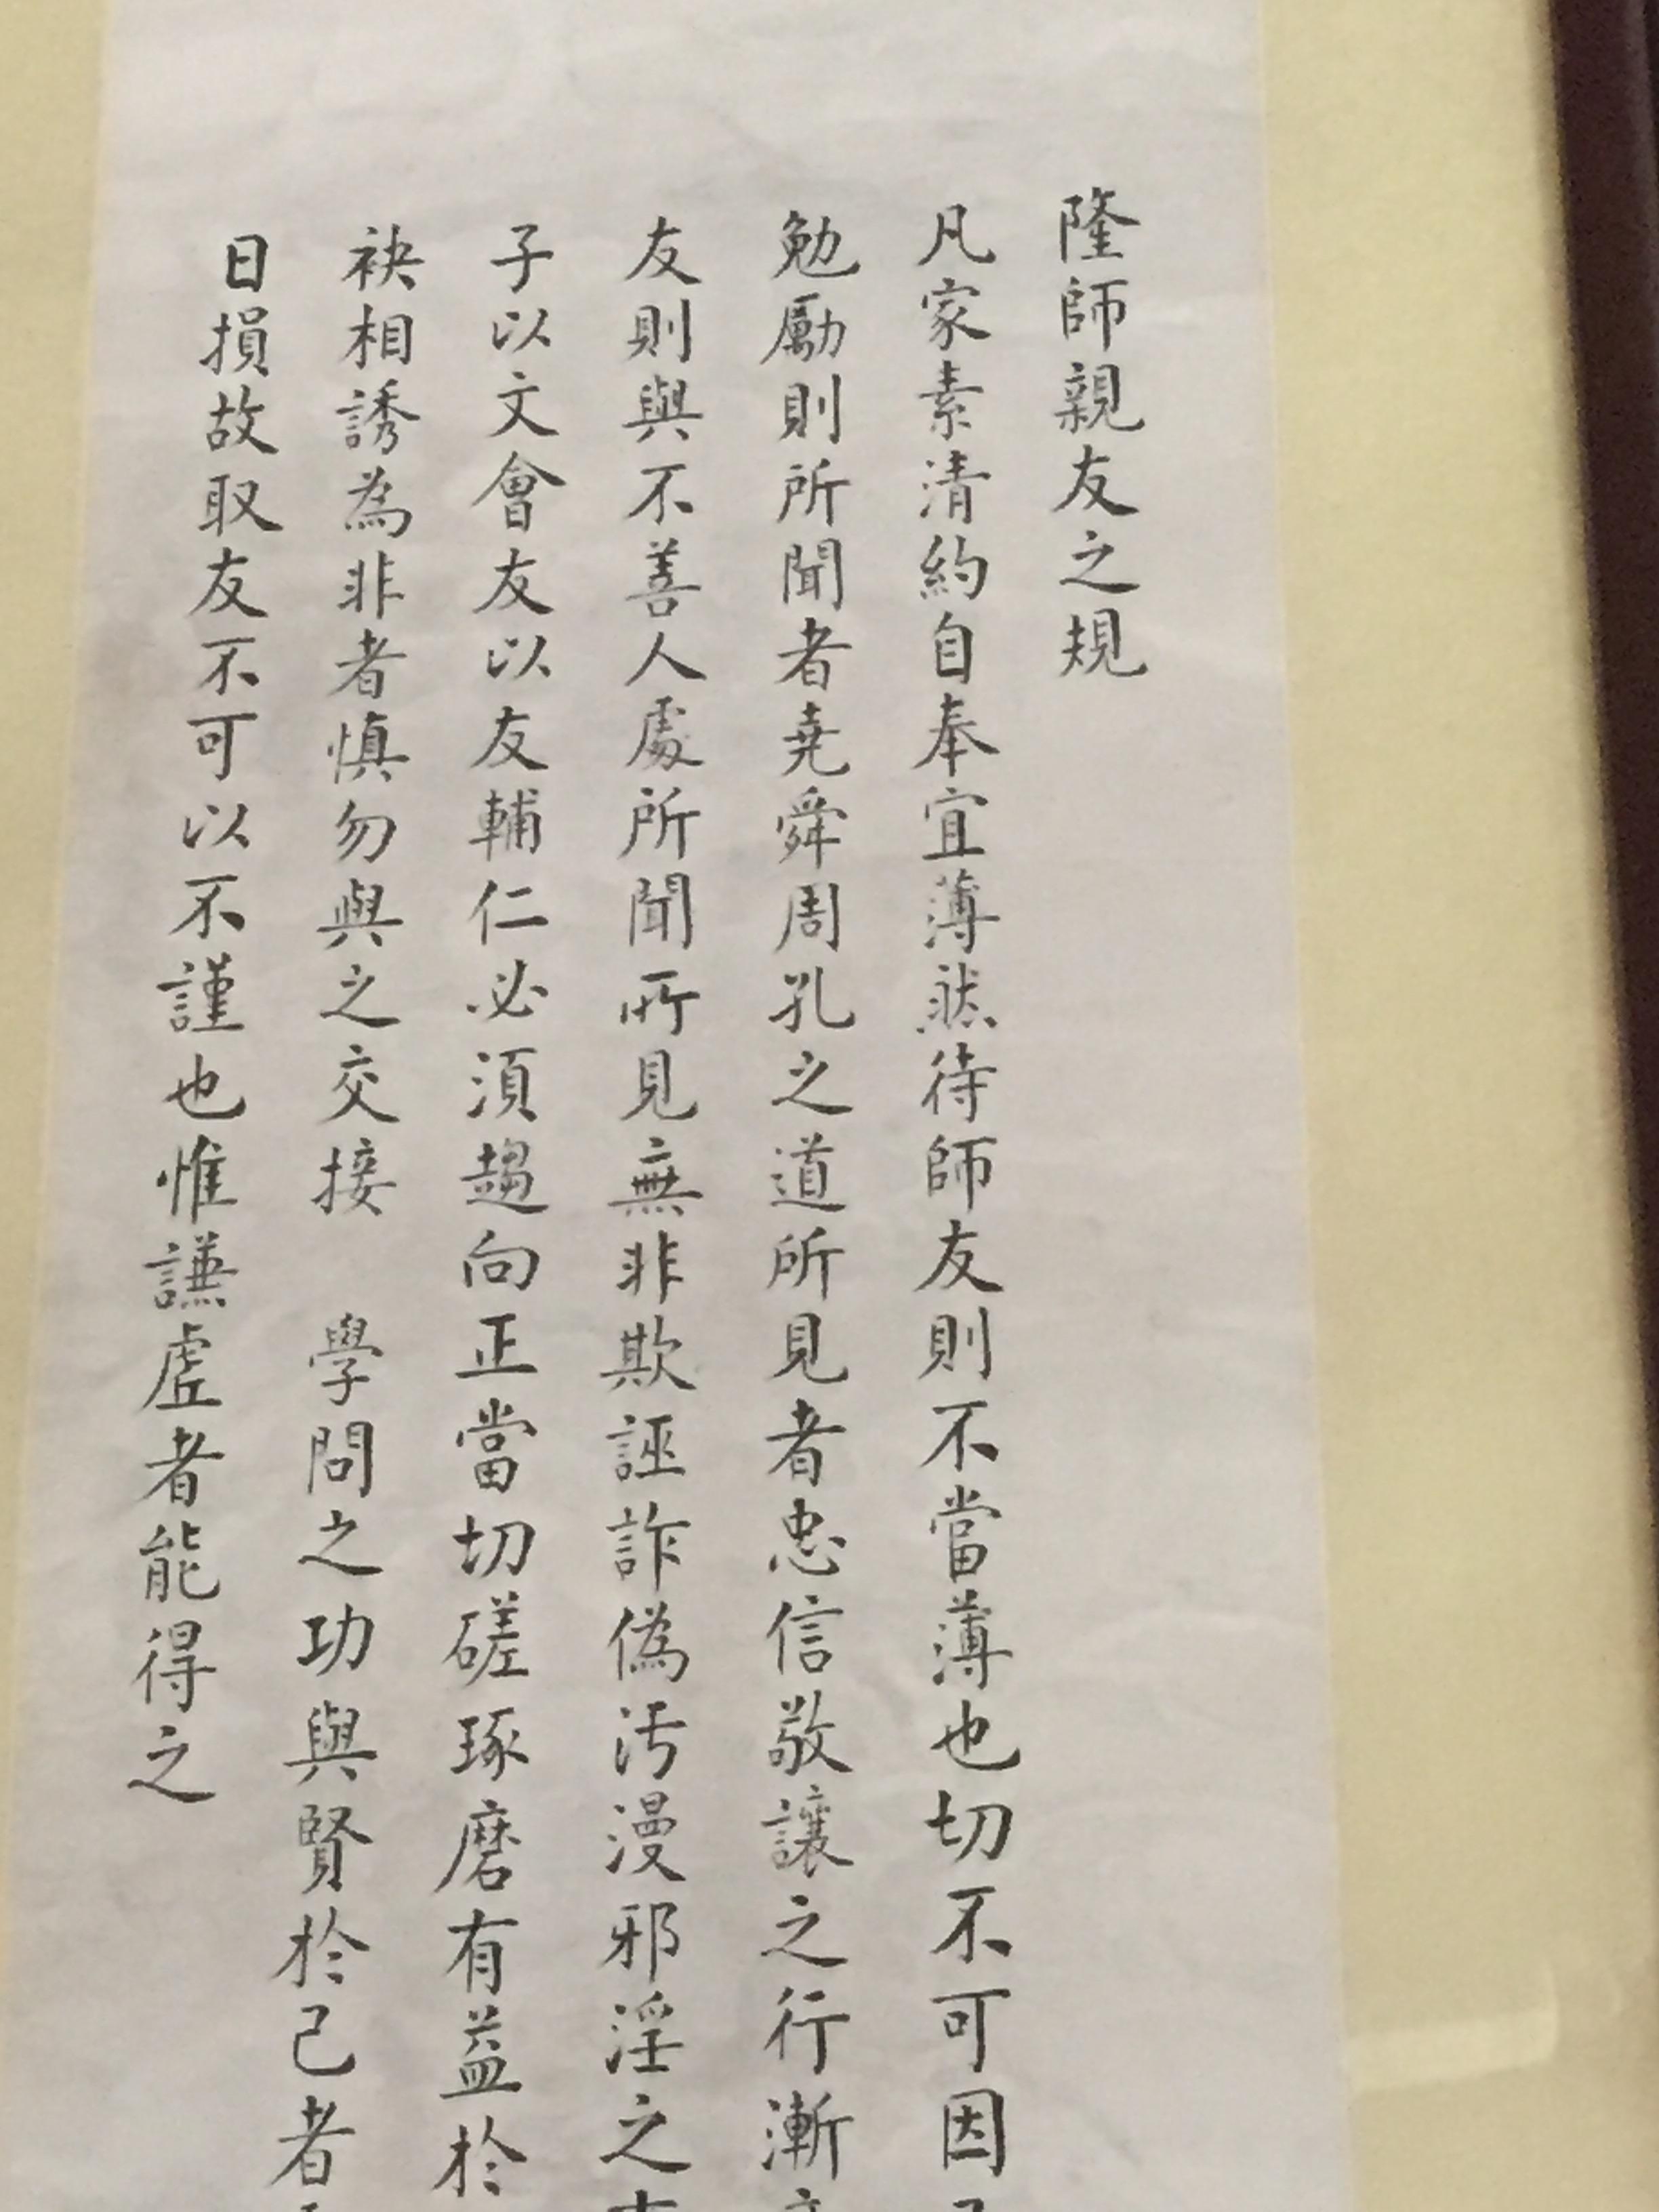 隆師親友之規
凡家素清約自奉宜薄然待師友則不當薄也切不可因
勉勵則所聞者堯舜周孔之道所見者忠信敬讓之行漸
友則與不善人處所聞所見無非欺誣詐偽污漫邪淫之
子以文會友以友輔仁必須趨向正當切磋琢磨有益於
袂相誘為非者慎勿與之交接 學問之功與賢於己者
日損故取友不可以不謹也惟謙虛者能得之